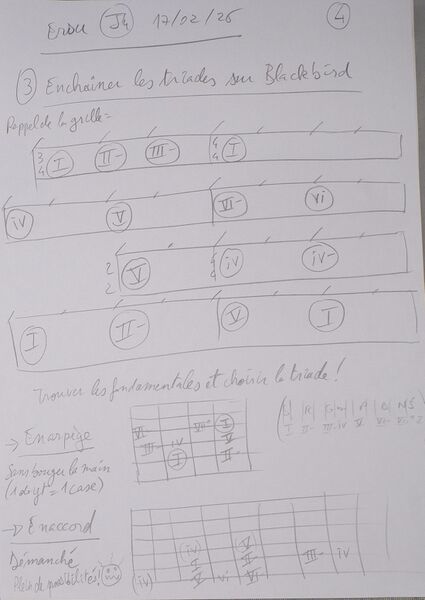 J4 17/02/26 4
3 Enchaîner les triades sur Blackbird
Rappel de la grille =
3/4 I II- III- 4/4 I
iv V VI- vi
2/2 V 4/4 iv iv-
I II- V I
Trouver les fondamentales et choisir la triade !
→ En arpège
Sans bouger la main
(1 doigt = 1 case)
VI- VII° I
III- iv V
I II-
→ En accord
Démanché
Plein de possibilités !
(iv) V
I II- III- iv
(iv) V vi VI-